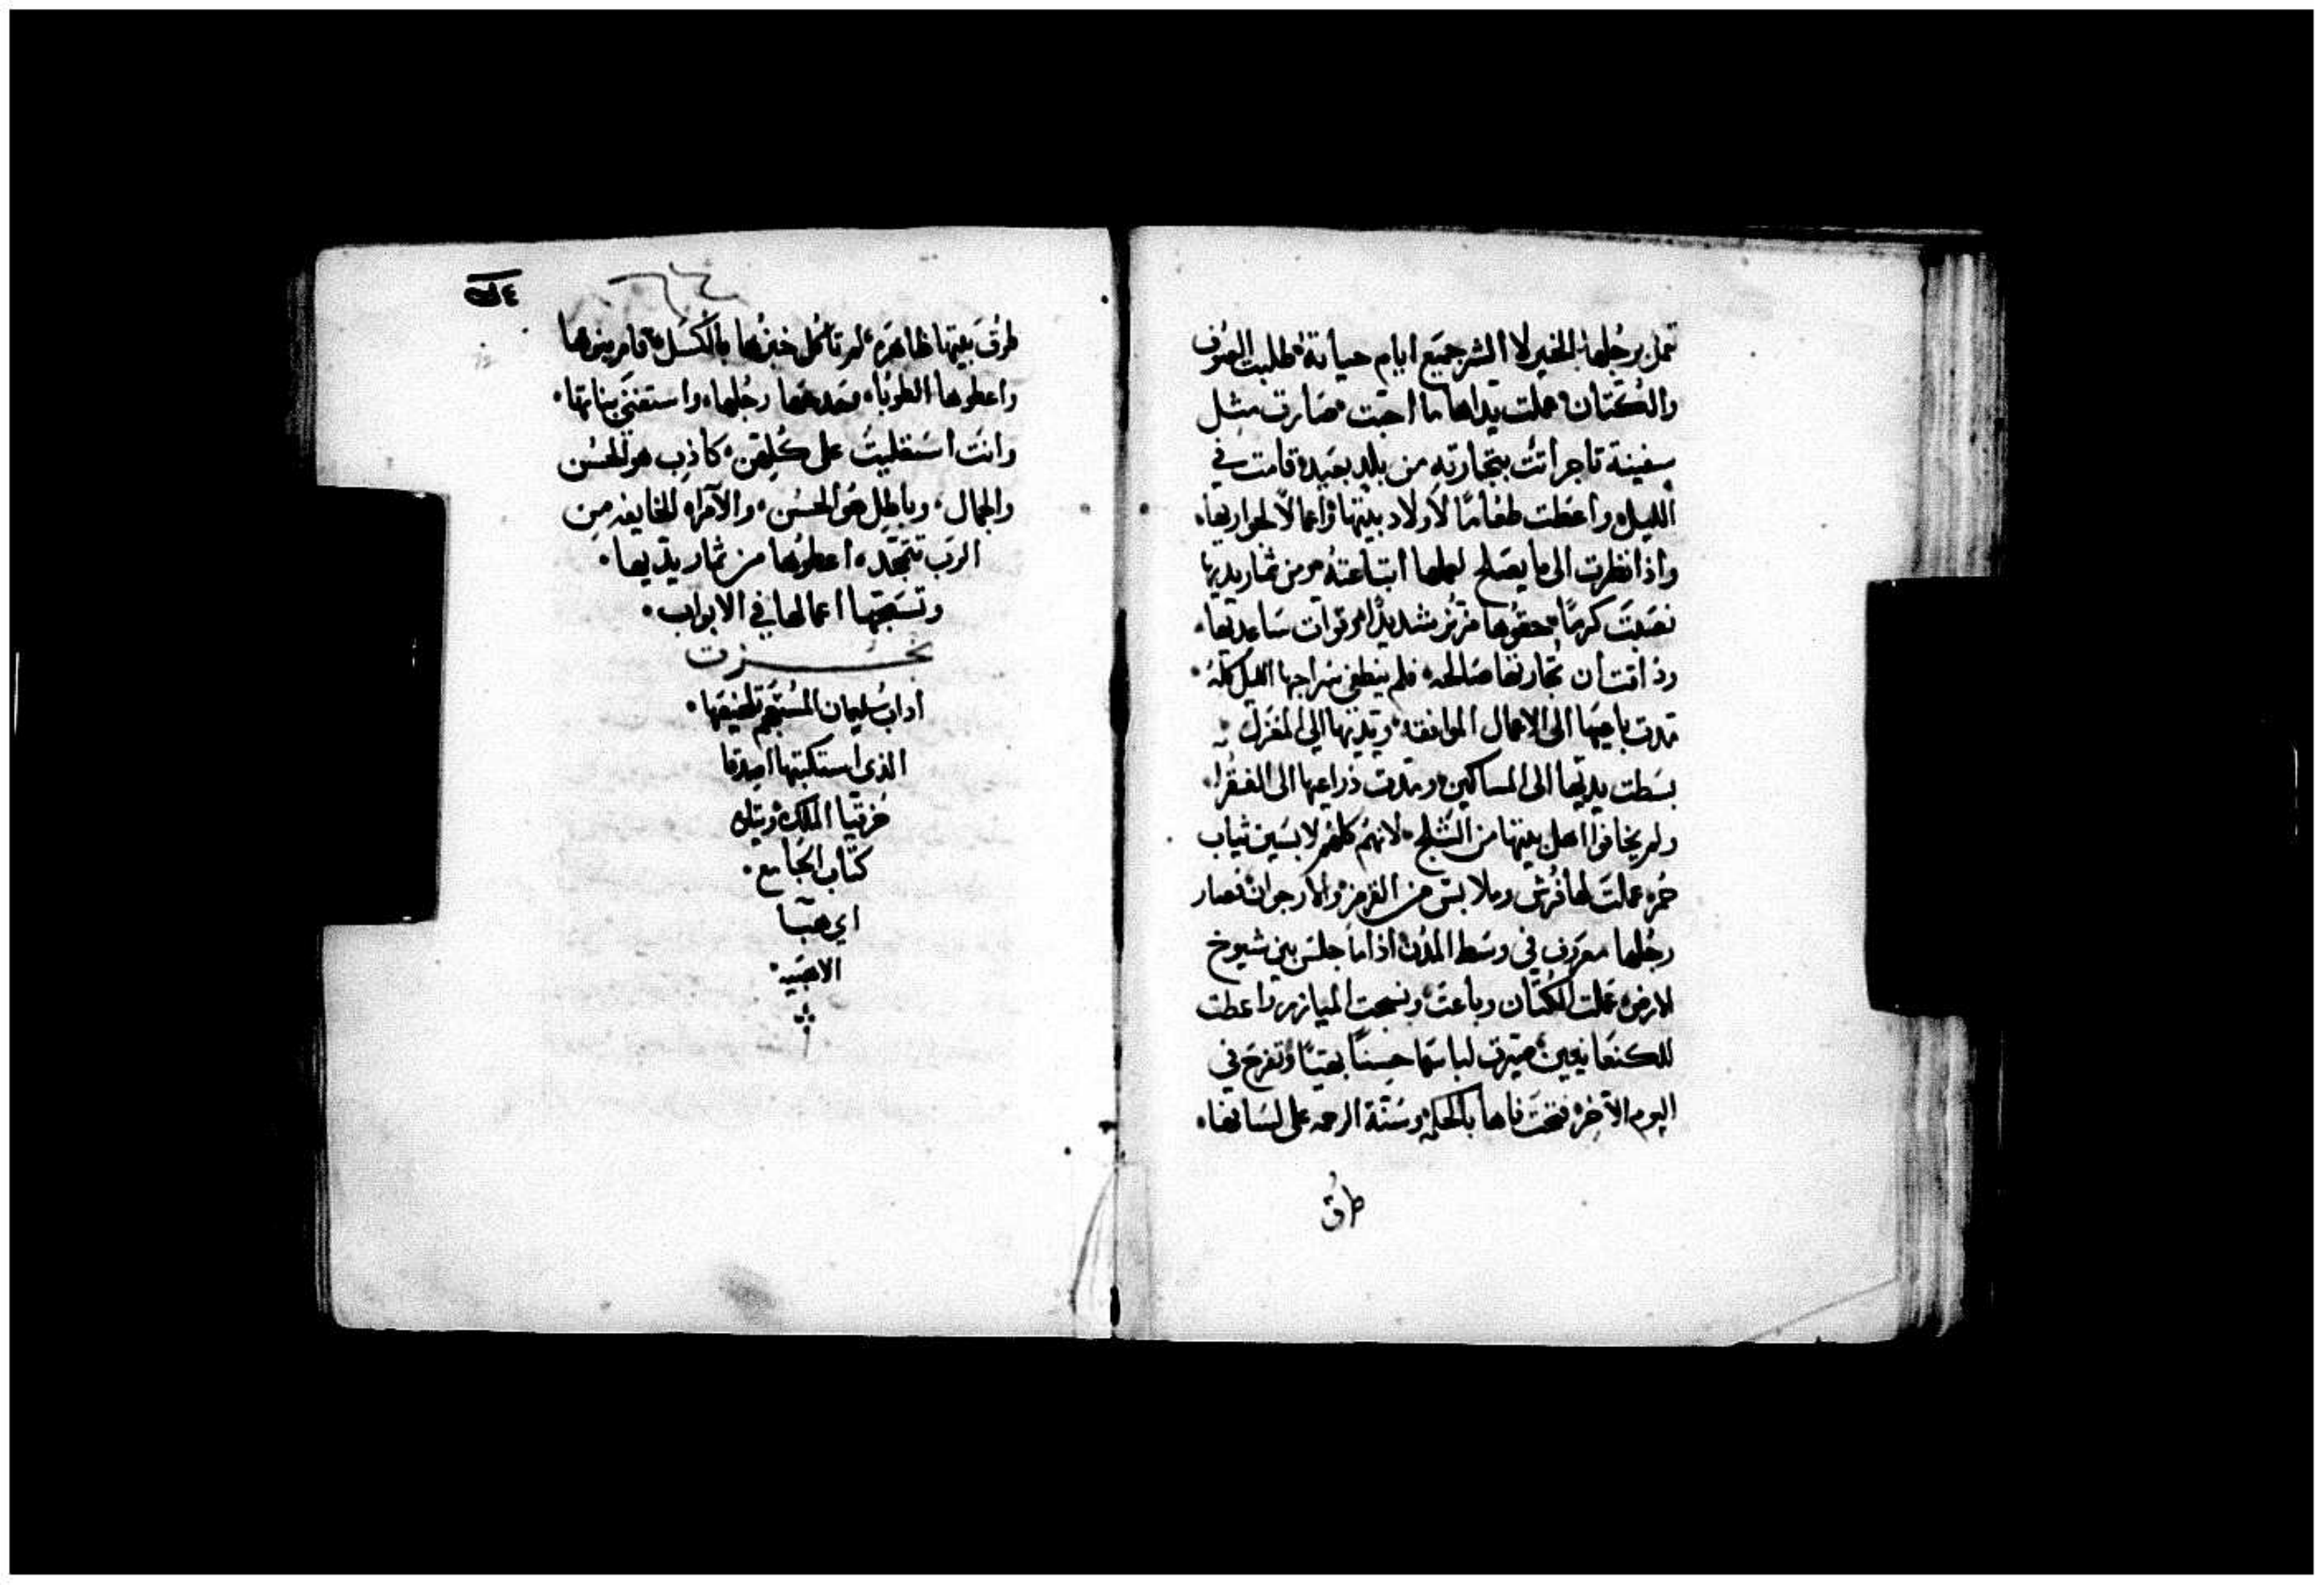 تعمل برجلها الخير لا الشر جميع ايام حياته طلبت الصوف
والكتان عملت يداها ما احبت صارت مثل
سفينة تاجر اتت بتجارته من بلد بعيد قامت في
الليل واعطت طعامًا لاولاد بيتها واعمالًا لجواريها
واذا نظرت الى ما يصلح لعملها ابتاعته ومن ثمار يديها
نصبت كرمًا حقوها مزنر شديدًا وقوات ساعديها
وذاقت ان تجارتها صالحه فلم ينطفي سراجها الليل كله
مدت باعيها الى الاعمال الموافقه ويديها الي المغزل
بسطت يديها الى المساكين ومدت ذراعيها الى الفقرا
ولم يخافوا اهل بيتها من الثلج لانهم كلهم لابسين ثياب
حمره عملت لها فرش وملابس من القرمز والارجوان فصار
رجلها معروف في وسط المدن اذا ما جلس بين شيوخ
الارض عملت الكتان وباعت ونسجت الميازر واعطت
للكنعانيين صيرت لباسها حسنًا بهيًا وتفرح في
اليوم الآخر فتحت فاها بالحكمه وسنة الرحمه على لسانها
طرق
٦٤
طرق بيتها ظاهره لم تاكل خبزها بالكسل قام بنوها
واعطوها الطوبا ومدحها رجلها واستغنى بناتها
وانت استعليت على كلهن كاذب هو الحسن
والجمال وباطل هو الحسن والآمراه الخايفه من
الرب تتمجد اعطوها من ثمار يديها
وتسبحها اعمالها في الابواب
نجزت
اداب سليمان
الذي استكتبها اصدقا
حزقيا الملك وتتلوه
كتاب الجامع
اي هبا
الاهبيه